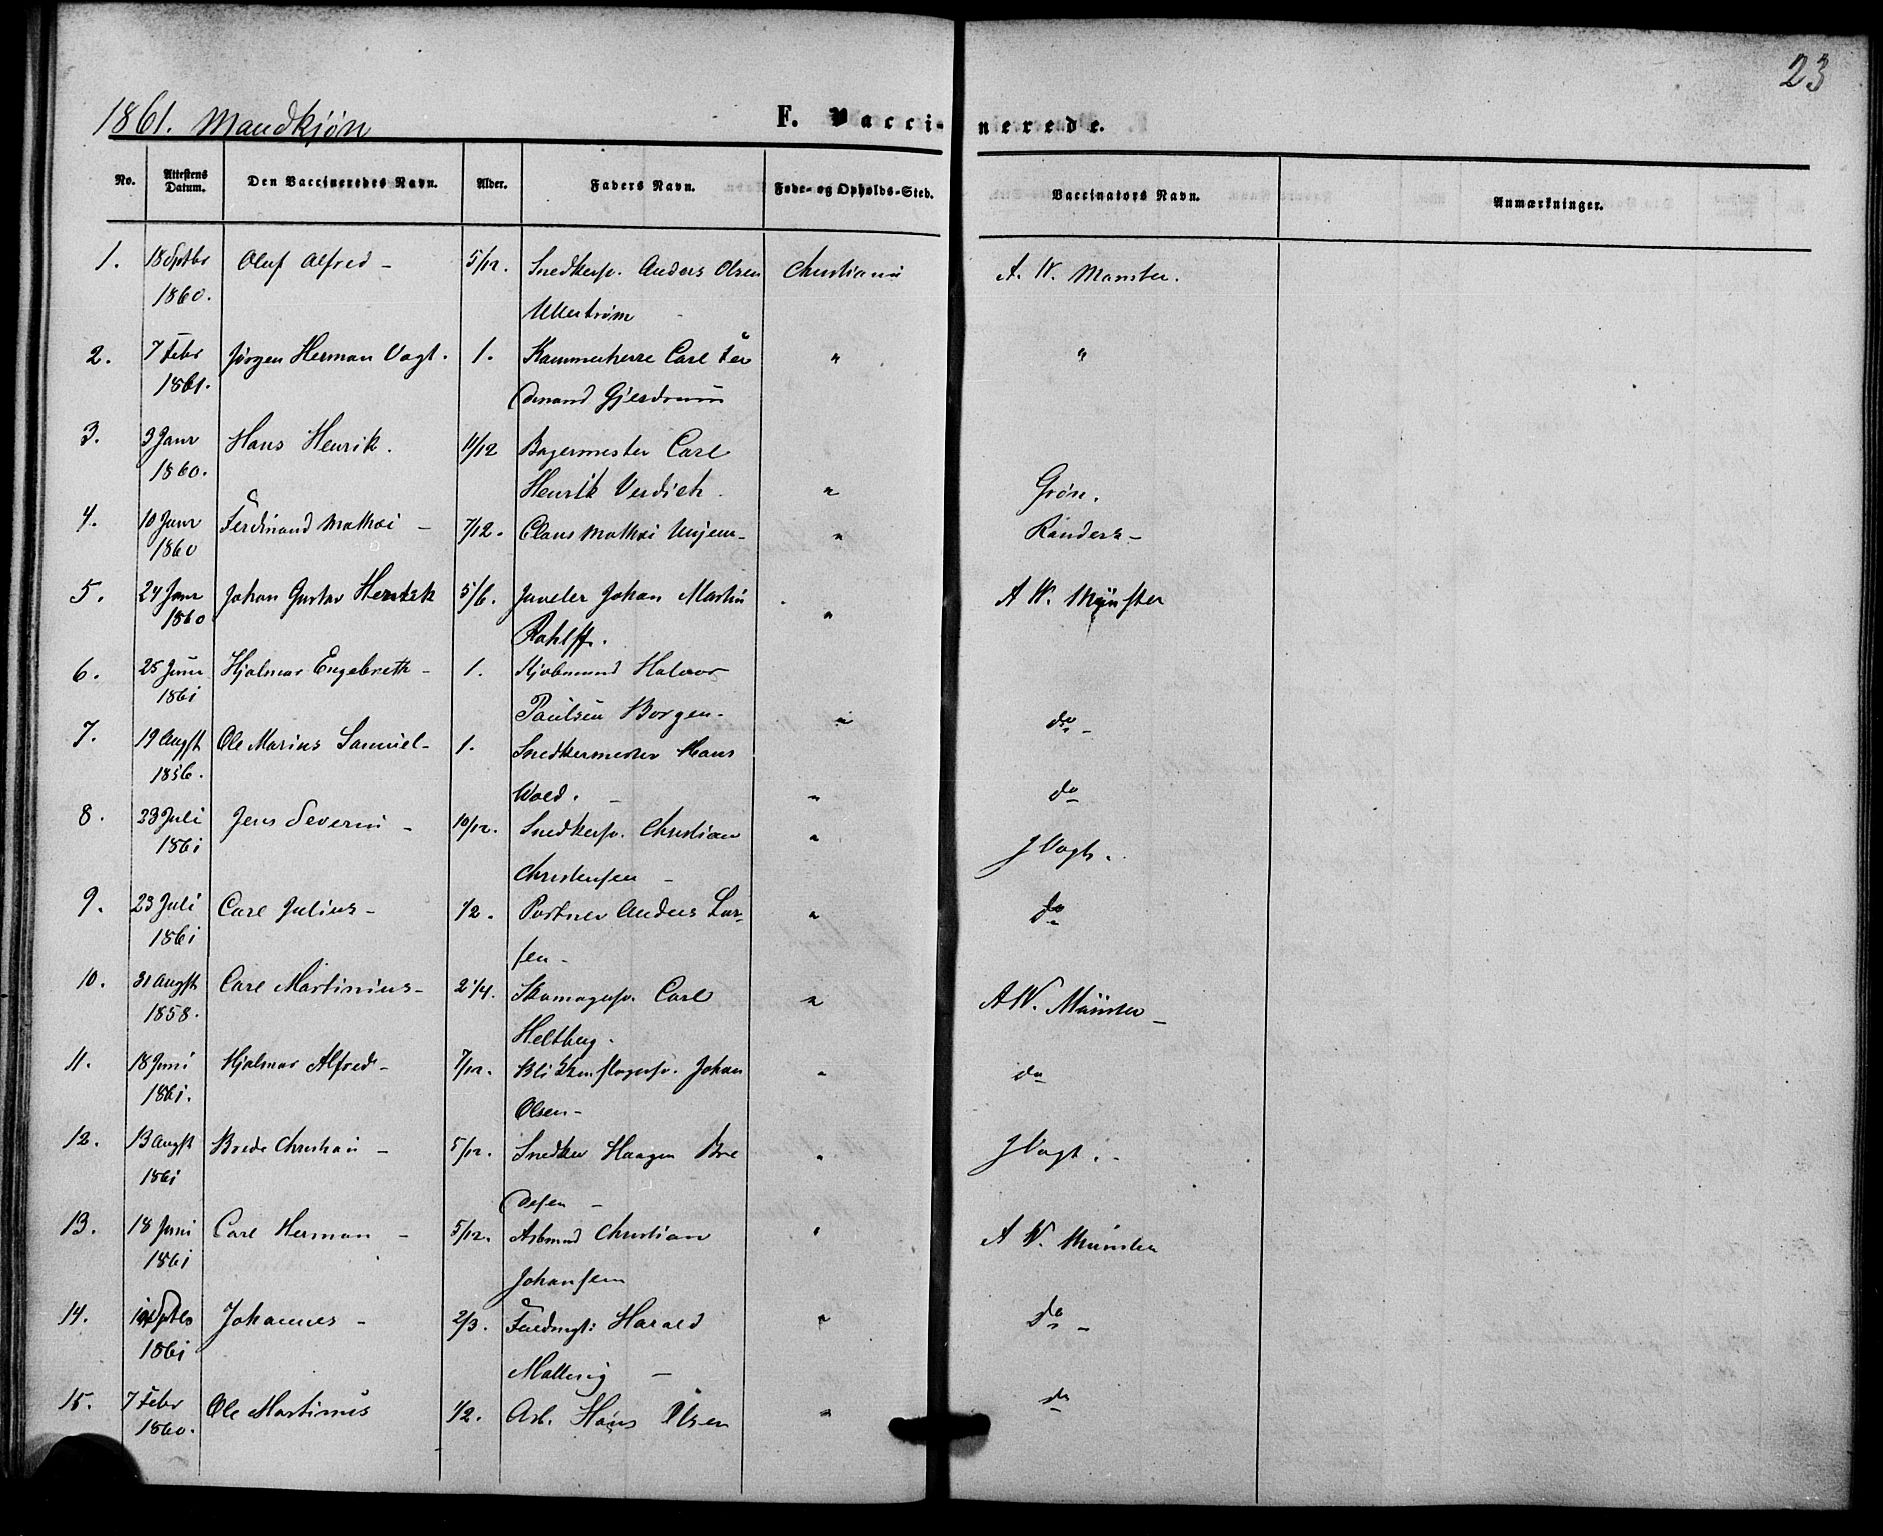 23
1861. Mandkjøn
F. Vaccinerede.
No. Attestens Datum. Den Vaccineredes Navn. Alder. Faders Navn. Føde- og Opholds-Sted. Vaccinators Navn. Anmærkninger.
1. 18 Septbr Oluf Alfred - 5/12. Snedkersv. Anders Olsen Christiania A. W. Mynster.
1860. Ullerstrøm -
2. 7 Febr Jørgen Herman Vogt. 1. Kammerherre Carl Fer " "
1861. dinand Gjerdrum
3. 3 Janr Hans Henrik. 11/12 Bagermester Carl
1860. Henrik Verdich. " Grøn.
4. 10 Janr Ferdinand Mathæi - 7/12. Claus Mathæi - "
1860
5. 24 Janr Johan Gustav Henrik 5/6. Juveler Johan Martin " A W. Münster
1860 Rohlff.
6. 25 Juni Hjalmar Engebreth - 1. Kjøbmand Halvor
1861 Paulsen Borgen. " do -
7. 19 Augst Ole Marius Samuel - 1. Snedkermester Hans
1856. Wold. - " do
8. 23 Juli Jens Severin - 10/12. Snedkersv. Christian " J Vogt.
1861 Christensen -
9. 23 Juli Carl Julius - 1/2. Portner Anders Lar- " do
1861 sen -
10. 31 Augst Carl Martinius - 2 1/4. Skomagersv. Carl " A W. Münster -
1858. Heltberg.
11. 18 Juni Hjalmar Alfred - 7/12. Blikkenslagersv. Johan " do
1861. Olsen -
12. 13 Augst Brede Christian - 5/12. Snedker Haagen Bre " J Vogt. -
1861 desen -
13. 18 Juni Carl Herman - 5/12. Arbmand Christian " A W. Münster
1861 Johansen
14. Septbr Johannes - 2/3. Fuldmgt: Harald " do -
1861 -
15. 7 Febr Ole Martinius 1/2. Arb. Hans Olsen " do
1860.